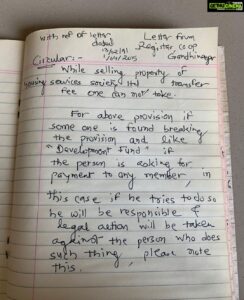 with ref of letter
dated
Letter from
Register co op
Gandhinagar
Circular:-
While selling property of
housing services society ltd transfer
fee one can not take.
For above provision if
some one is found breaking
the provision and like
"Development fund"
the person is asking for
payment to any member, in
this case if he tries to do so
he will be responsible &
legal action will be taken
against the person who does
such thing, please note
this.